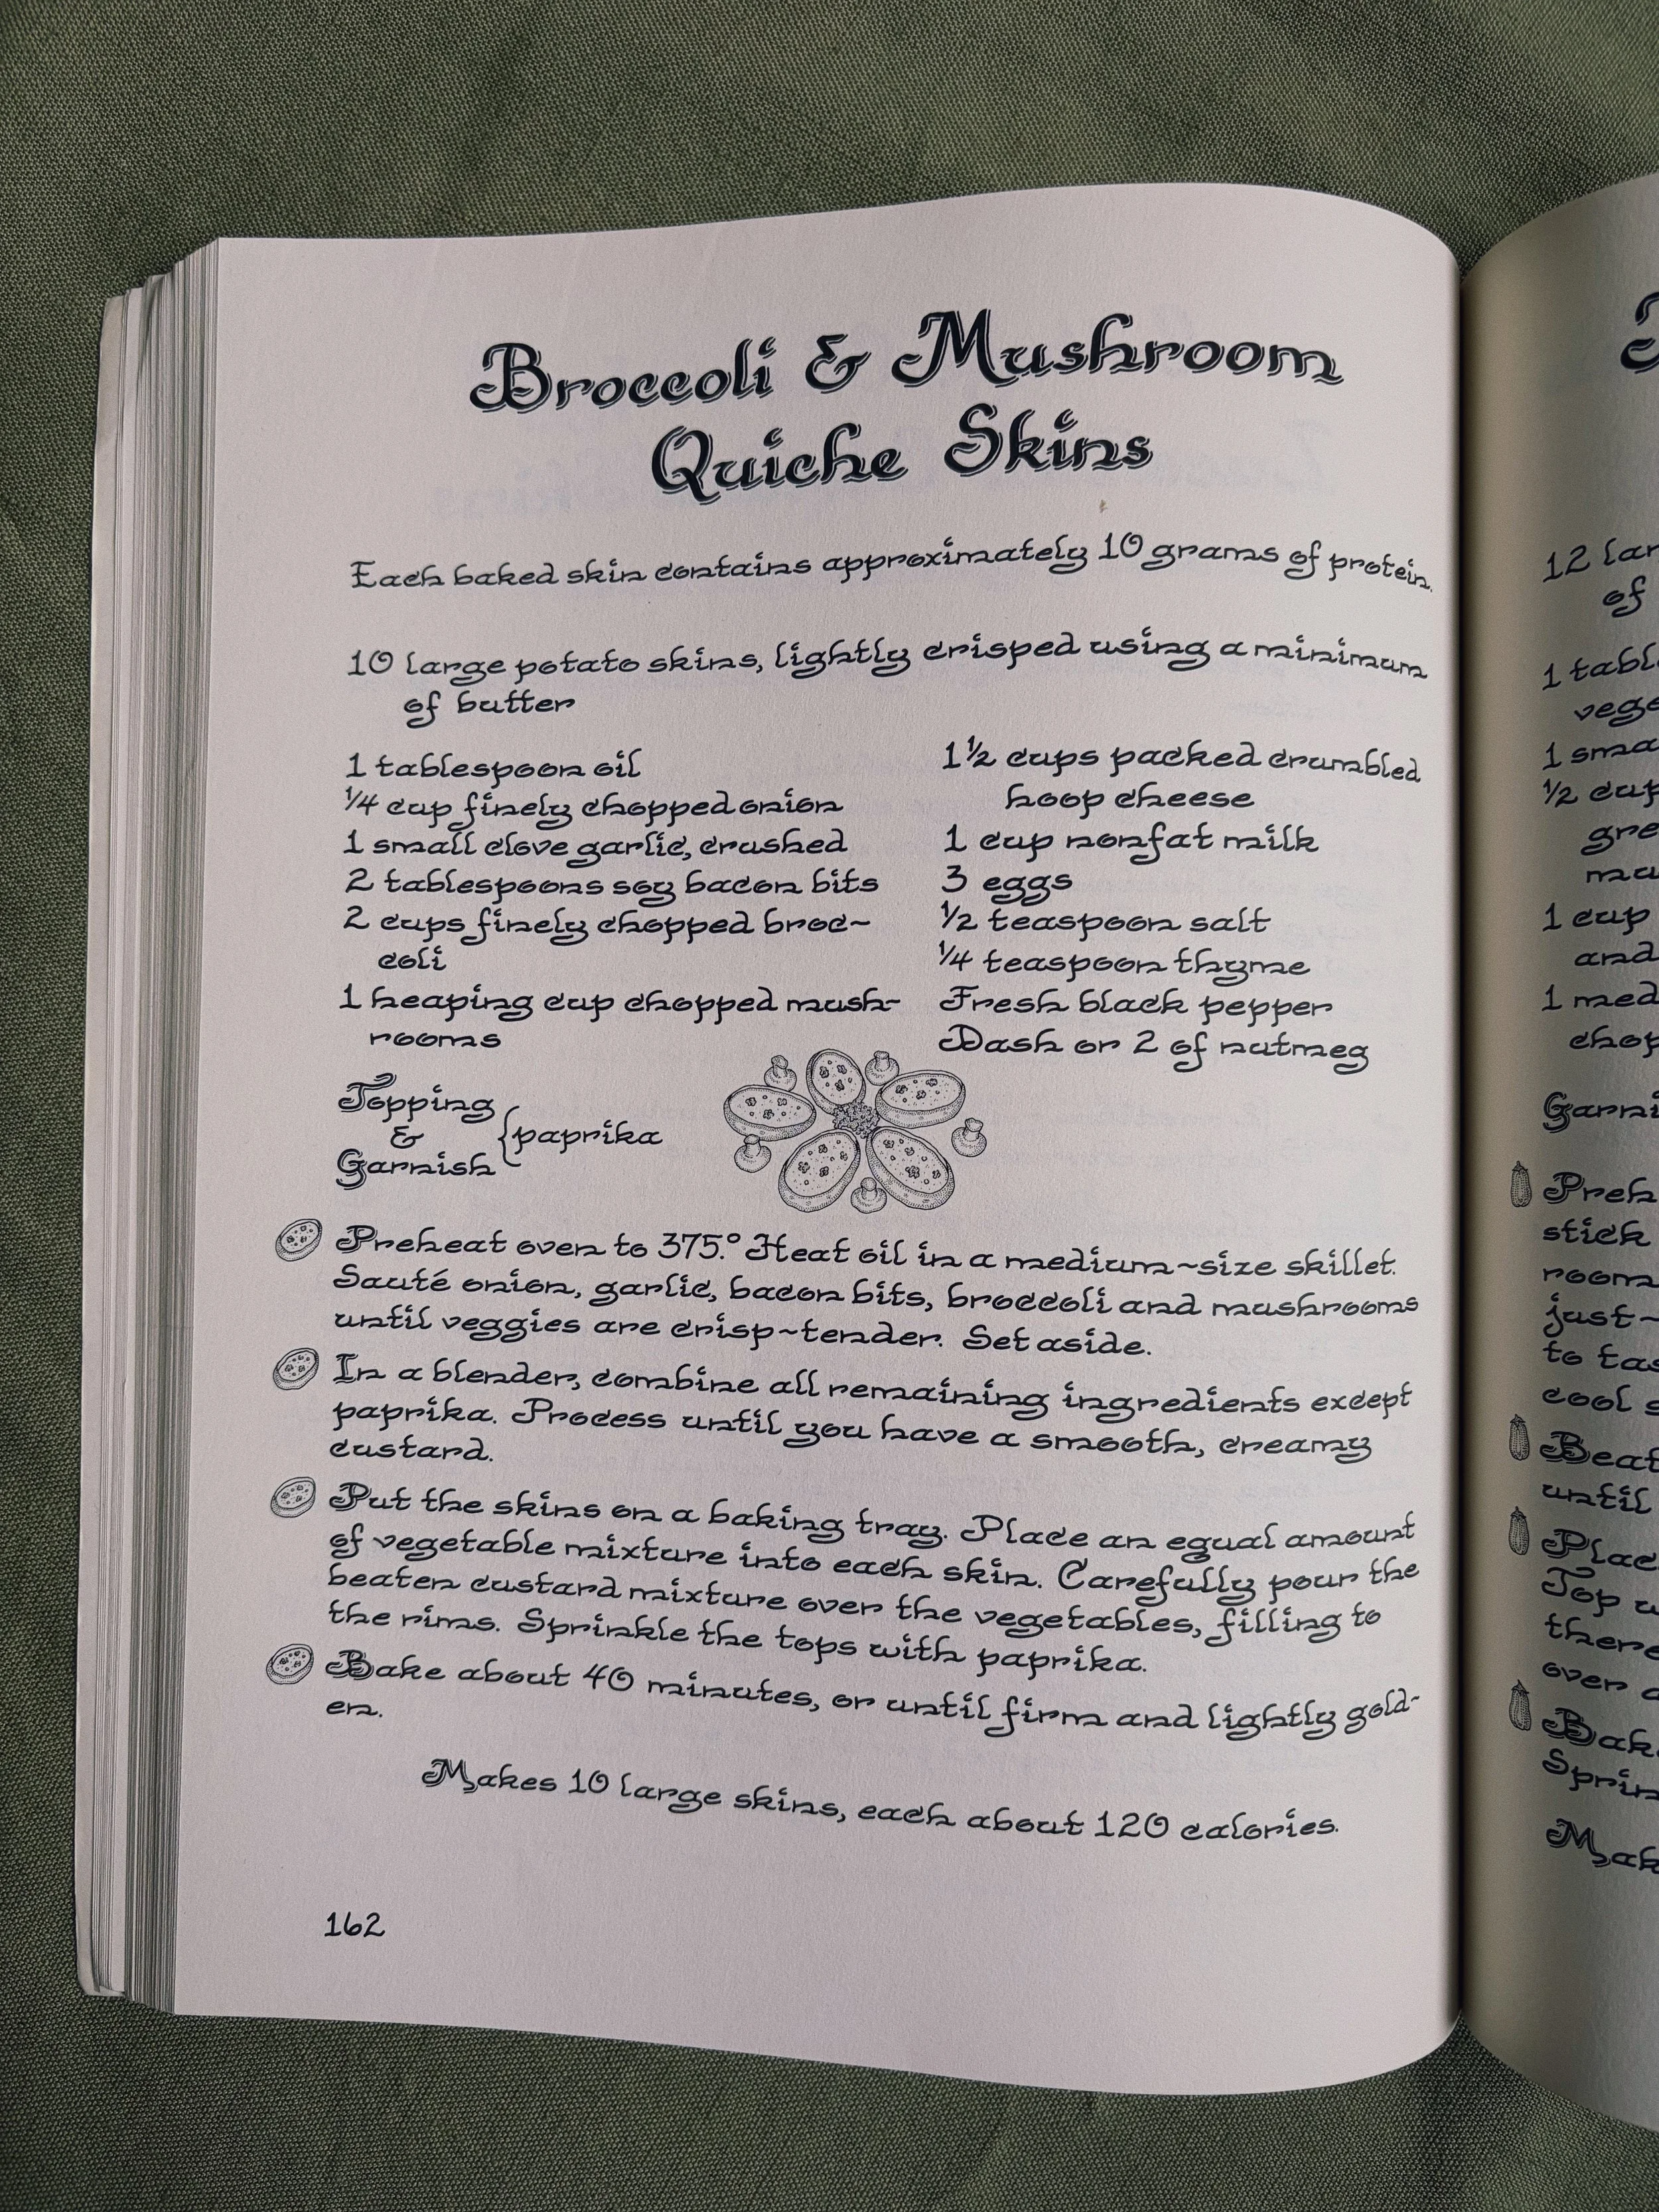 Broccoli & Mushroom
Quiche Skins
Each baked skin contains approximately 10 grams of protein.
10 large potato skins, lightly crisped using a minimum
of butter
1 tablespoon oil
¼ cup finely chopped onion
1 small clove garlic, crushed
2 tablespoons soy bacon bits
2 cups finely chopped broc~
coli
1 heaping cup chopped mush~
rooms
1½ cups packed crumbled
hoop cheese
1 cup nonfat milk
3 eggs
½ teaspoon salt
¼ teaspoon thyme
Fresh black pepper
Dash or 2 of nutmeg
Topping
&
Garnish
{paprika
Preheat oven to 375.° Heat oil in a medium~size skillet.
Sauté onion, garlic, bacon bits, broccoli and mushrooms
until veggies are crisp~tender. Set aside.
In a blender, combine all remaining ingredients except
paprika. Process until you have a smooth, creamy
custard.
Put the skins on a baking tray. Place an equal amount
of vegetable mixture into each skin. Carefully pour the
beaten custard mixture over the vegetables, filling to
the rims. Sprinkle the tops with paprika.
Bake about 40 minutes, or until firm and lightly gold~
en.
Makes 10 large skins, each about 120 calories.
162
12
of
1
1
½
1 cup
and
1
Beat
until
to
cool
over